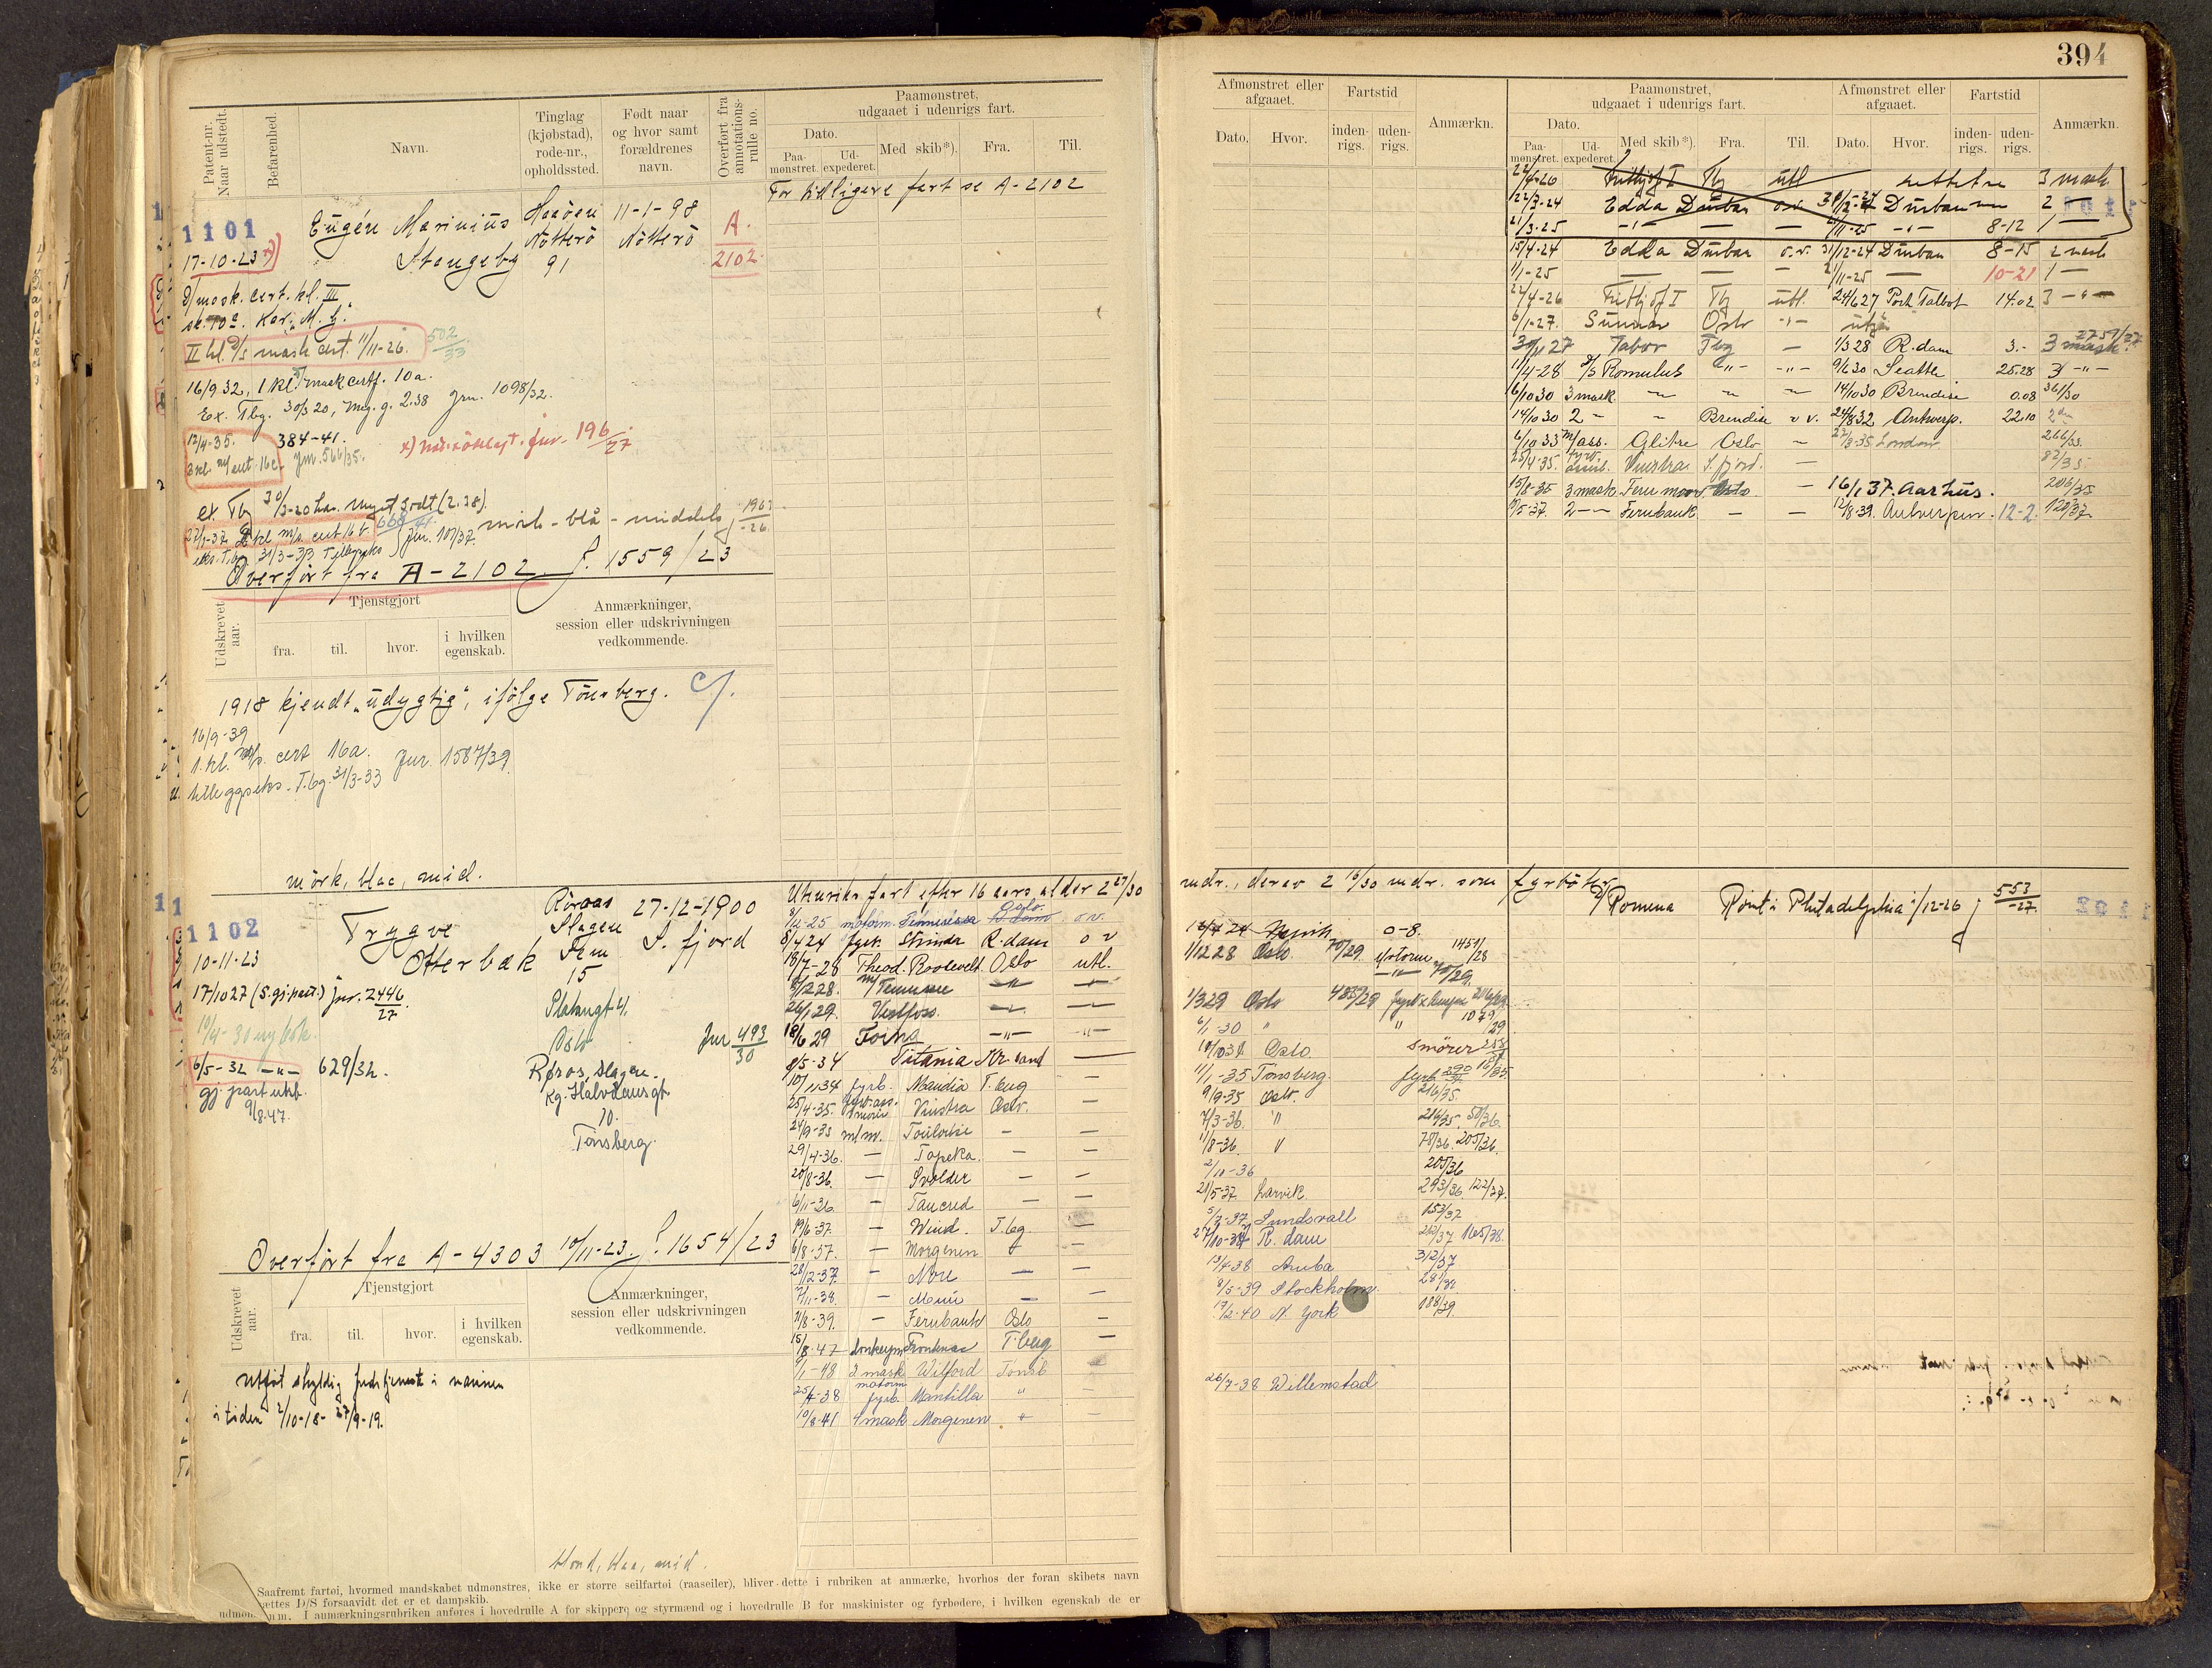 394
Patent-nr. Naar udstedt.
Befarenhed.
Navn.
Tinglag (kjøbstad), rode-nr., opholdssted.
Født naar og hvor samt forældrenes navn.
Overført fra annotations-rulle no.
Paamønstret, udgaaet i udenrigs fart.
Dato.
Paa-mønstret.
Ud-expederet.
Med skib*).
Fra.
Til.
For tidligere fart se A-2102
1101
17-10-23
Eugén Marinius Stangeby
Nötterö
91
11-1-98
Nötterö
A.
2102
D/mask. cert. kl. III
II kl. D/s mask cert. 11/11-26. 502/33
16/9 32, 1 kl. mask certf. 10a.
Ex. Tbg. 30/3 20, meg. g. 2.38 Jrn. 1098/32.
12/4-35. 384-41.
Jrn. 566/35.
196/27
ex Tbg 30/3-20 kar. meget godt (2.38)
mörk - blå - middels j 1963/-26
Jnr. 107/37
Overfört fra A-2102 J. 1559/23
Udskrevet aar.
Tjenstgjort
fra.
til.
hvor.
i hvilken egenskab.
Anmærkninger, session eller udskrivningen vedkommende.
1918 kjendt "udygtig", ifölge Tönsberg.
16/9-39
1. kl. m/s. cert 16a. Jnr. 1587/39.
tilleggseks. T.bg. 31/3-33
mörk, blaa, mid.
1102
10-11-23
Trygve Otterbæk
Röraas
Slagen
Sem
15
27-12-1900
S. fjord
17/10 27 (S. gj. part.) jnr. 2446/27
10/4-30 ny bok
Oslo
Jnr 493/30
6/5-32 -"- 629/32.
Røros, Slagen.
Kg. Halvdansgt.
10.
Tønsberg.
gj. part utst.
9/8.47.
Overfört fra A-4303 10/11-23. J. 1654/23
Udskrevet aar.
Tjenstgjort
fra.
til.
hvor.
i hvilken egenskab.
Anmærkninger, session eller udskrivningen vedkommende.
Utført skyldig tjeneste i marinen
i tiden 2/10-18- 27/9-19.
blond, blaa, mid.
Utenriks fart efter 16 aars alder 2 27/30
mdr., derav 2 15/30 mdr. som fyrböter
8/4 24 fyrb. Strinda R. dam o v
18/7-28 Theod. Roosevelt Oslo utl.
8/12 28. M/Tennessee
26/1 29. Vestfoss.
18/6 29 Torna
8/5-34 Titania Kr. sand
10/11 34 fyrb. Maudia T. beg
25/4-35. Vinstra Oslo.
24/9-35 m/m. Toulouse
29/4-36. Topeka.
20/8-36. Svolder
6/11-36 Tancred
19/6-37. Wind. T. bg.
6/8-37. Morgenen
28/12-37. Nore
7/11-38. Menin
11/8-39. Fernbank Oslo
15/8-47 donkeym. Frontenac T. berg
1/1-48 2 mask Wilford Tonsb
25/4-38 motorm fyrb. Mantilla "
10/8-41 4 mask Morgenen "
Saafremt fartøi, hvormed mandskabet udmønstres, ikke er større seilfartøi (raaseiler), bliver dette i rubriken at anmærke, hvorhos der foran skibets navn
sættes D/S forsaavidt det er et dampskib.
I anmærkningsrubriken anføres i hovedrulle A for skippere og styrmænd og i hovedrulle B for maskinister og fyrbødere, i hvilken egenskab de er
Afmønstret eller afgaaet.
Dato.
Hvor.
Fartstid
inden-rigs.
uden-rigs.
Anmærkn.
Paamønstret, udgaaet i udenrigs fart.
Dato.
Paa-mønstret.
Ud-expederet.
Med skib*).
Fra.
Til.
Afmønstret eller afgaaet.
Dato.
Hvor.
Fartstid
inden-rigs.
uden-rigs.
Anmærkn.
22/4-26 Fridtjof I Tbg utl 3 mask
Edda Durban o.v. Durban 2 -
21/3-25 8-12 1 -
15/4-24 Edda Durban o.v. 31/12-24 Durban 8-15 2 mask
1/1-25 10-21 1 -
22/4-26 Fridtjof I Tbg utl. 24/6 27 Port Talbot 14.02 3 -"-
6/1-27. Sunnar Oslo -"-
30/11 27 Tabor Tbg 1/3 28 R. dam 3.- 3 mask 2759/27
11/4-28 D/S Romulus 9/6 30 Seattle 25.28 3 -"-
6/10 30 3 mask 14/10 30 Brendise 0.08 361/30
14/10 30 2 - Brendise o v. 24/8 32 Antwerp. 22.10
6/10 33 m/ass. Glitre Oslo London 266/33
25/4-35. Vinstra S. fjord. 82/35.
15/8-35 3 mask Fernmoor Oslo 16/1 37 Aarhus. 206/35
2 - Fernbank 12/8 39. Antverpen. 12-2. 120/37
D/Romena Rømt i Philadelphia /12-26 j 553/-27.
12/4 24 0-8.
1/12 28 Oslo 70/29. Motorm 1451/28
1/3 29 Oslo
6/1-30 " " 1079/29
10/10 34 Oslo smörer
11/1-35 Tønsberg fyrb
9/9-35 Oslo. 216/35.
7/3-36. " 216/35. 50/36.
11/8-36. " 70/36. 205/36.
2/10-36 205/36
21/5-37. Larvik. 293/36. 122/37.
5/7-37 Sundsvall 153/37
27/10-37 R. dam 165/38.
19/4-38 Aruba 312/37
8/5-39 Stockholm
17/2-40 N. York 188/39
26/7-38 Willemstad